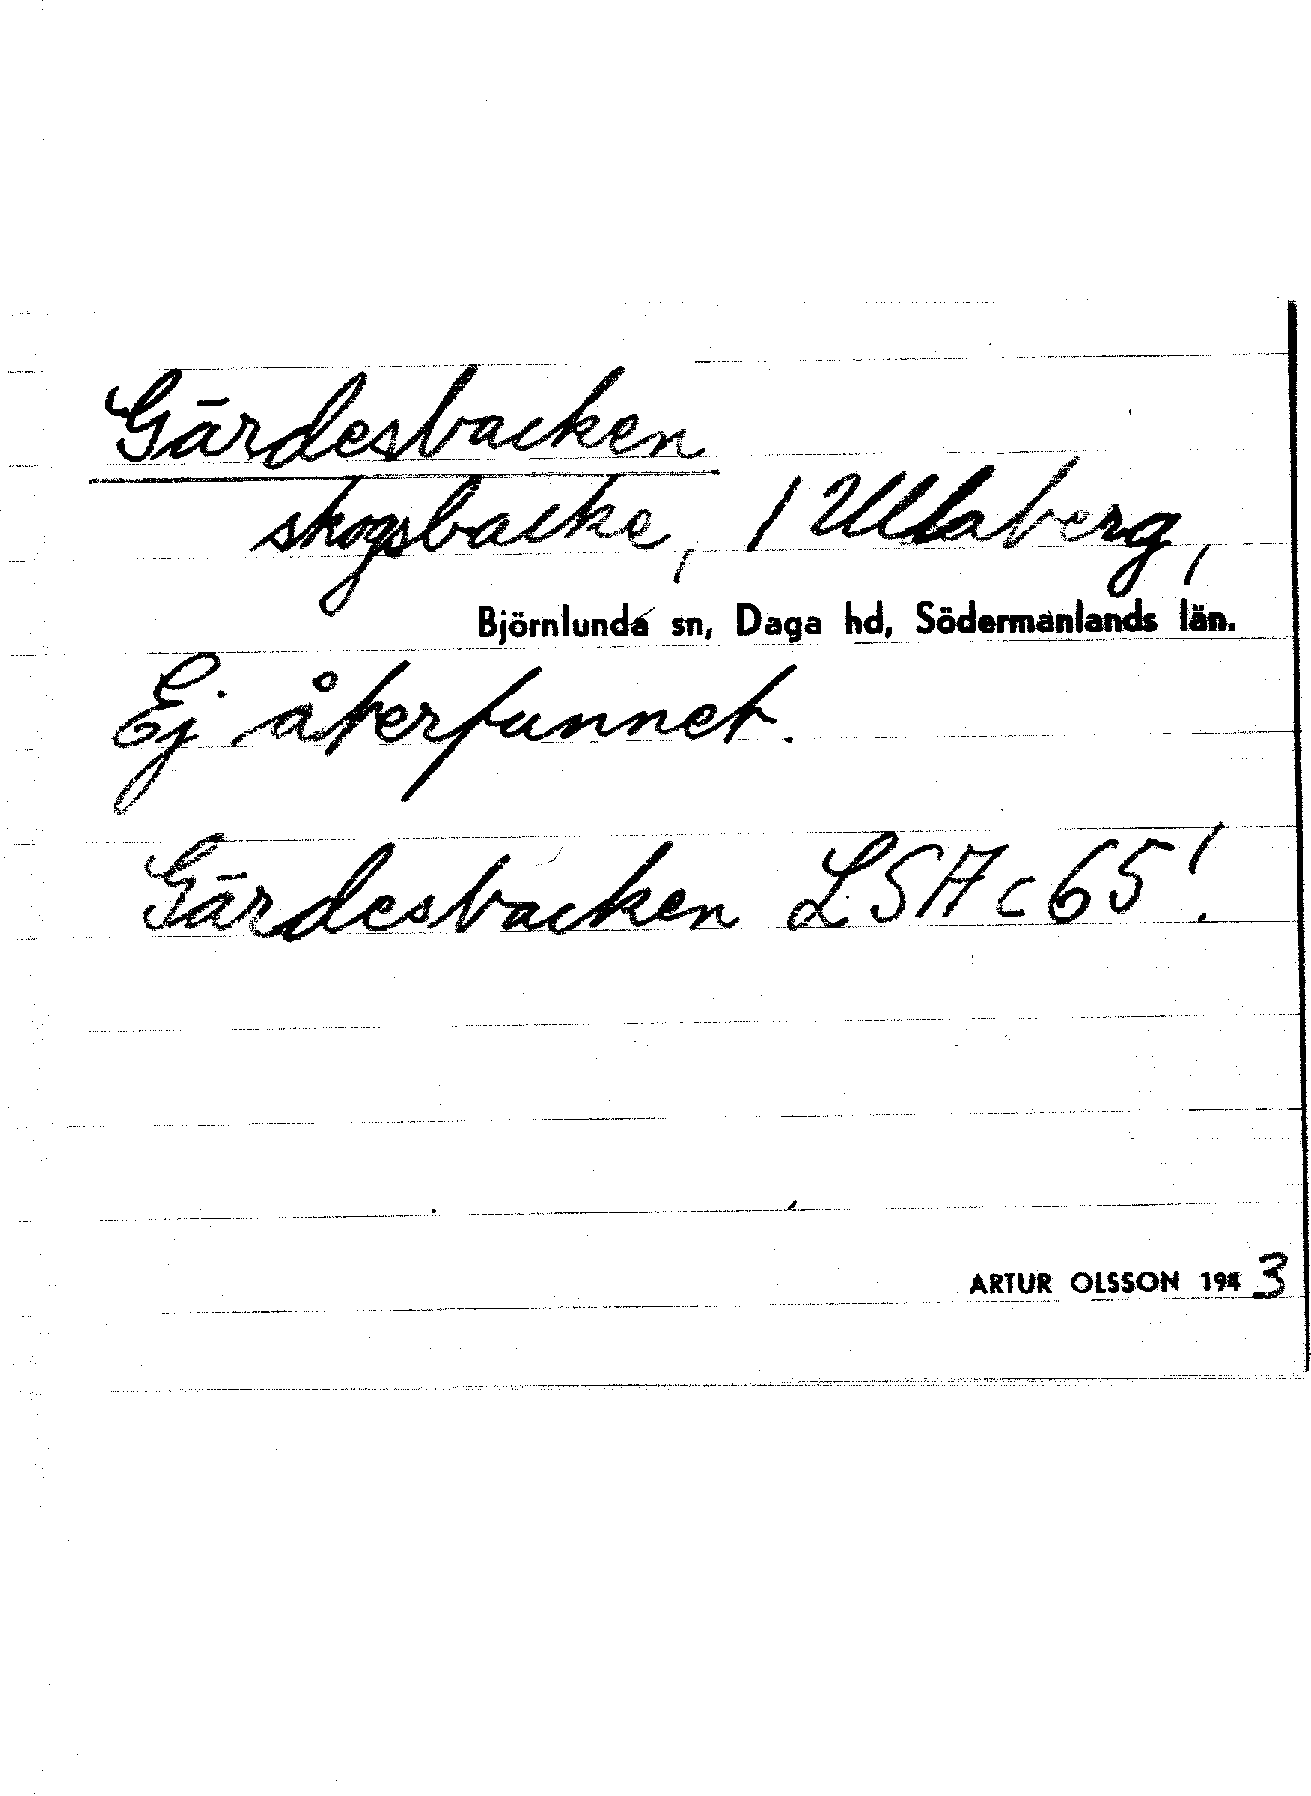 Gärdesbacken
skogsbacke, / Ullaberg,
Björnlunda sn, Daga hd, Södermanlands län.
Ej återfunnet.
Gärdesbacken LSA c 65!
ARTUR OLSSON 1943